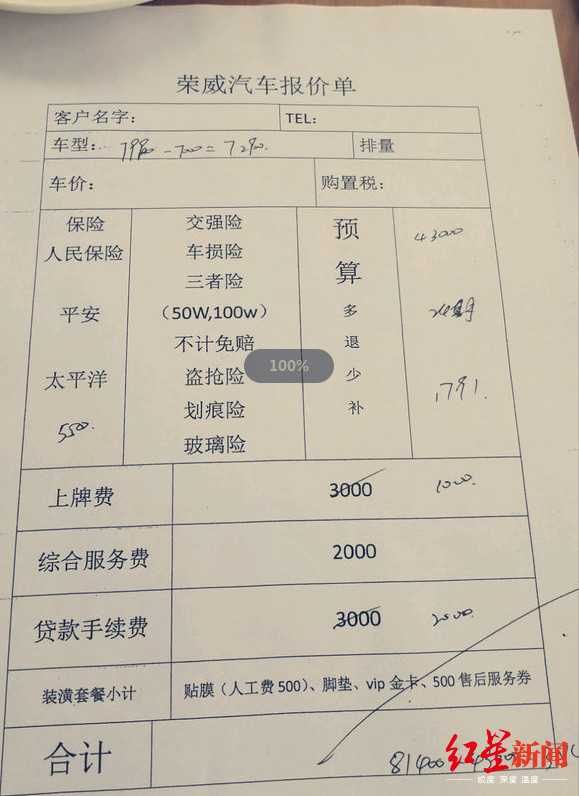 荣威汽车报价单
客户名字： TEL：
车型： 排量
车价： 购置税：
保险 交强险 预 43000
人民保险 车损险 算
三者险
平安 （50W,100w） 多
不计免赔 退
100%
太平洋 盗抢险 少 1791.
5500. 划痕险 补
玻璃险
上牌费 3000 1000.
综合服务费 2000
贷款手续费 3000 2000.
装潢套餐小计 贴膜（人工费 500）、脚垫、vip 金卡、500 售后服务券
合计 81400
红星新闻
锐度 深度 温度